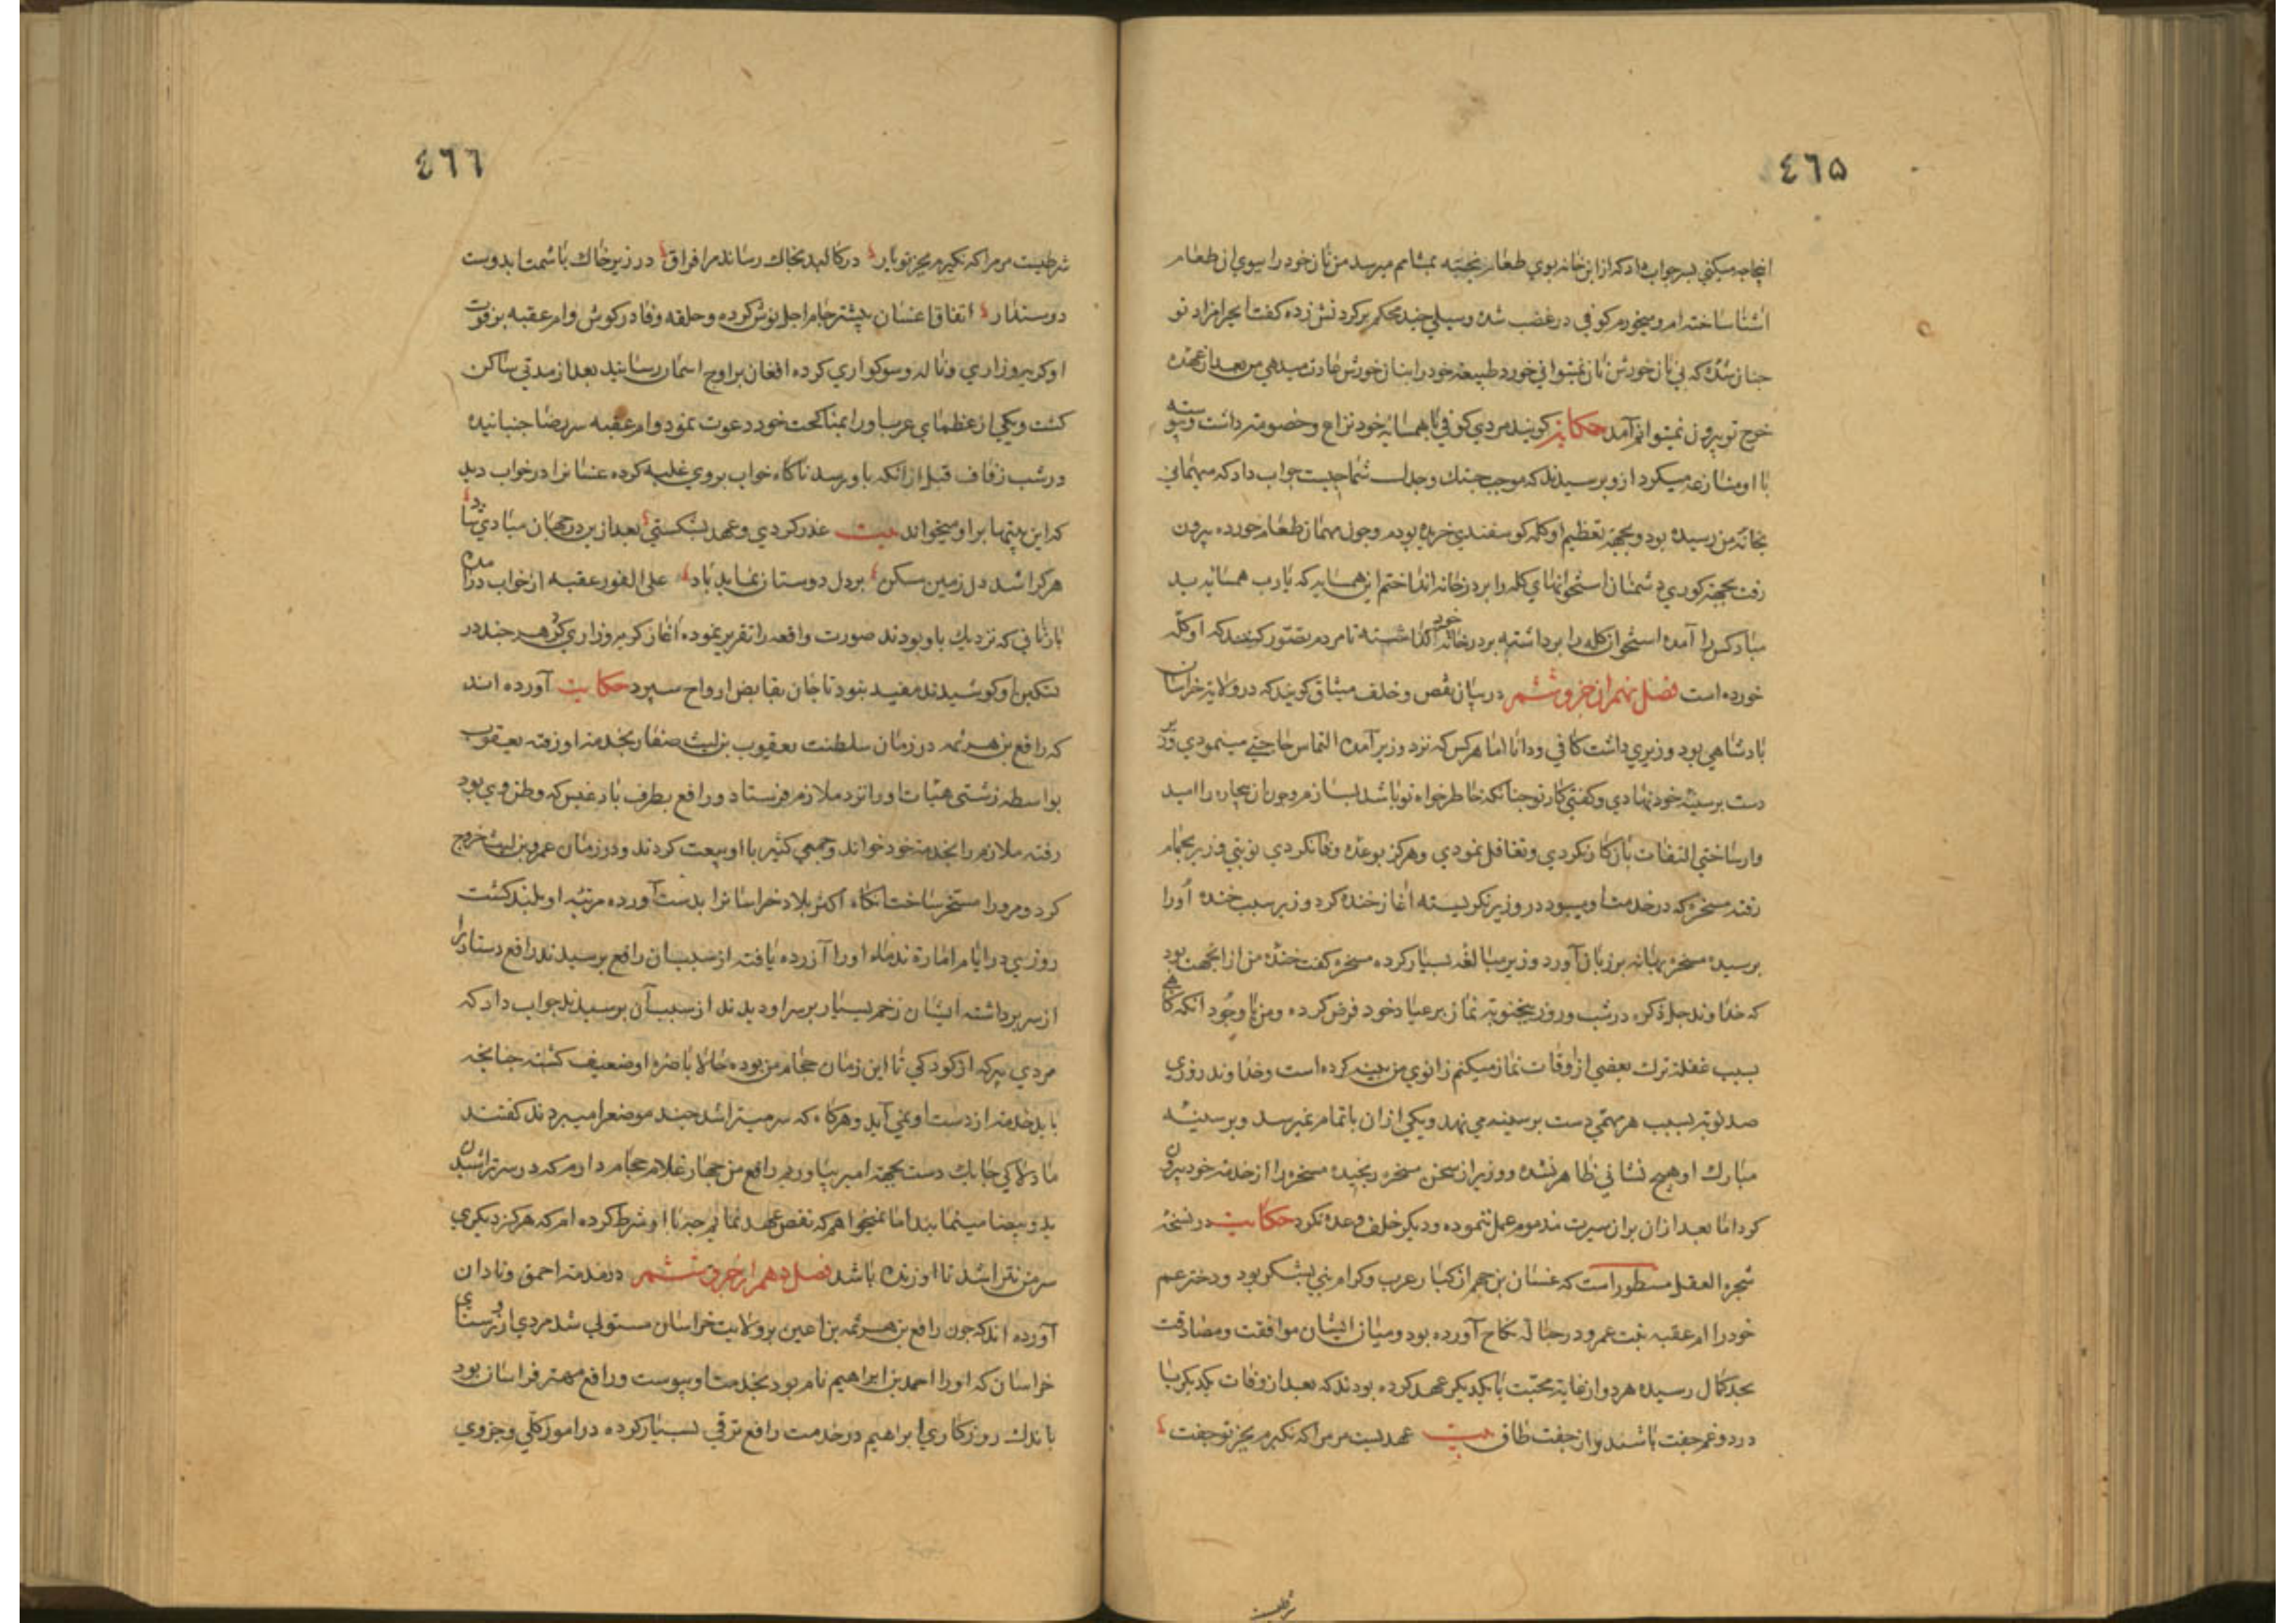 ٤٦٥
اینجا چه میکنی پسر جواب داد که از این خانه بوی طعام پخته بمشامم میرسد من نان خود را ببوی آن طعام
آشنا ساخته ام و میخورم کوفی در غضب شده و سیلی چند محکم بر کردنش زده کفت ای حرامزاده تو
چنان شدهٔ که بی نان خورش نان نمیتوانی خورد طبیعت خود را بنان خورش عادت میدهی من بعد از عهده
خرج تو بیرون نمیتوانم آمد حکایت کویند مردی کوفی با همسایهٔ خود نزاع و خصومت داشت و پیوسته
با او منازعه میکرد ازو پرسیدند که موجب جنک و جدل شما چیست جواب داد که مهمانی
بخانه من رسیده بود و بجهة تعظیم او کله کوسفندی خریده بودم و چون مهمان طعام خورده بیرون
رفت بجهة کوری دشمنان استخوانهای کله را بر در خانه انداختم این همسایه که یارب همسایه بد
مباد کس را آمده استخوان کله را برداشته بر در خانه خود کذاشته تا مردم تصور کنند که او کله
خورده است فصل نهم از جزو ششم در بیان نقض و خلف میثاق کویند که در ولایت خراسان
پادشاهی بود وزیری داشت کافی و دانا اما هر کس که نزد وزیر آمده التماس حاجتی مینمودی وزیر
دست بر سینه خود نهادی و کفتی کار تو چنانکه خاطر خواه تو باشد بسازم و چون آن بیچاره را امید
وار ساختی التفات بآن کار نکردی و تغافل نمودی و هرکز بوعده وفا نکردی نوبتی وزیر بحمام
رفته مسخرهٔ که در خدمت او میبود در وزیر نکریسته آغاز خنده کرد وزیر سبب خنده او را
پرسیده مسخره بهانه بر زبان آورد وزیر مبالغه بسیار کرده مسخره کفت خنده من از آنجهت بود
که خداوند جل ذکره در شب و روز پنج نوبت نماز بر عباد خود فرض کرده و من با وجود آنکه کاهی
بسبب غفلت ترک بعضی از اوقات نماز میکنم زانوی من پینه کرده است و خداوند روزی
صد نوبت بسبب هر مهمی دست بر سینه می نهد و یکی از آن باتمام نمیرسد و بر سینهٔ
مبارک او هیچ نشانی ظاهر نشده و وزیر از سخن مسخره رنجیده مسخره را از خدمت خود بیرون
کرد اما بعد از آن بر آن سیرت مذموم عمل ننموده و دیکر خلف وعده نکرد حکایت در نسخهٔ
شجرة العقل مسطور است که غسان بن جهم از کبار عرب و کرام بنی یشکر بود و دختر عم
خود را ام عقبه بنت عمرو در حباله نکاح آورده بود و میان ایشان موافقت و مصادقت
بحد کمال رسیده هر دو از غایة محبت با یکدیکر عهد کرده بودند که بعد از وفات یکدیکر با
درد و غم جفت باشند و از جفت طاق بیت عهدیست مر مرا که نکیرم بجز تو جفت
شرطیست
٤٦٦
شرطیست مر مرا که نکیرم بجز تو یار در کالبد بخاک رساند مرا فراق در زیر خاک باشمت ای دوست
دوستدار اتفاقا غسان پیشتر جام اجل نوش کرده و حلقه وفا در کوش و ام عقبه بر فوت
او کریه و زاری و ناله و سوکواری کرده افغان بر اوج آسمان رسانید بعد از مدتی ساکن
کشت و یکی از عظمای عرب او را بمناکحت خود دعوت نمود و ام عقبه سر رضا جنبانیده
در شب زفاف قبل از آنکه باو رسد ناکاه خواب بر وی غلبه کرده غسان را در خواب دید
که این بیتها بر او میخواند بیت غدر کردی و عهد بشکستی بعد ازین در جهان مبادی شاد
هر کرا شد دل زمین مسکن بر دل دوستان نماید یاد علی الفور عقبه از خواب در آمده
با زنانی که نزدیک باو بودند صورت واقعه را تقریر نموده آغاز کریه و زاری کرد هر چند در
تسکین او کوشیدند مفید نبود تا جان بقابض ارواح سپرد حکایت آورده اند
که رافع بن هرثمه در زمان سلطنت یعقوب بن لیث صفار بخدمت او رفته یعقوب
بواسطه زشتی هیات او را نزد ملازم فرستاد و رافع بطرف بادغیس که وطن وی بود
رفته ملازم را بخدمت خود خواند و جمعی کثیر با او بیعت کردند و در زمان عمرو بن لیث خروج
کرد و مرو را مسخر ساخت آنکاه اکثر بلاد خراسان را بدست آورده مرتبه او بلند کشت
روزی در ایام امارة ندماء او را آزرده یافته از سبب آن رافع پرسیدند رافع دستار را
از سر برداشته ایشان زخم بسیار بر سر او دیدند از سبب آن پرسیدند جواب داد که
مردی پیر که از کودکی تا این زمان حجام من بوده حالا باصرهٔ او ضعیف کشته چنانچه
باید خدمت از دست او نمی آید و هرکاه که سر میتراشد چند موضع را میبرد ندما کفتند
ما دلاکی چابک دست بجهة امیر بیاوریم رافع من چهار غلام حجام دارم که در سر تراشیدن
ید و بیضا مینمایند اما نمیخواهم که نقض عهد نمایم چه با او شرط کرده ام که هرکز دیکری
سر من نتراشد تا او زنده باشد فصل دهم از جزو ششم در مذمت احمق و نادان
آورده اند که چون رافع بن هرثمه بن اعین بر ولایت خراسان مستولی شد مردی از روستای
خراسان که او را احمد بن ابراهیم نام بود بخدمت او پیوست و رافع مهتر خراسان بود
باندک روزکاری ابراهیم در خدمت رافع ترقی بسیار کرده در امور کلی و جزوی